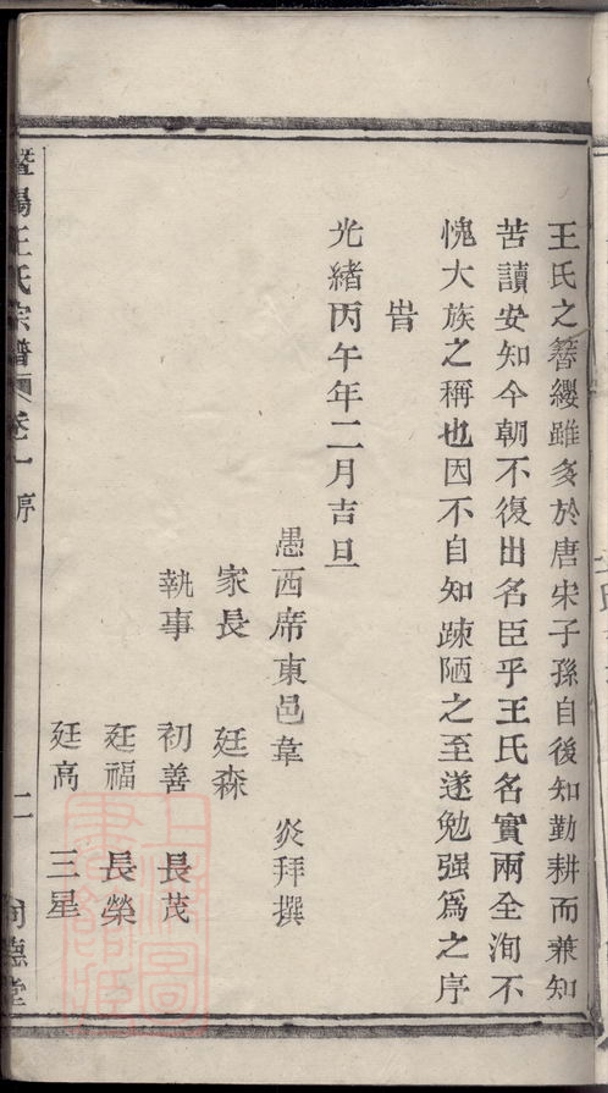 王氏之簪纓雖多於唐宋子孫自後知勤耕而兼知
苦讀安知今朝不復出名臣乎王氏名實兩全洵不
愧大族之稱也因不自知踈陋之至遂勉强爲之序
旹
光緒丙午年二月吉旦
愚西席東邑韋 炎拜撰
家長 廷森
執事 初善 長茂
廷福 長榮
廷高 三星
暨陽王氏宗譜 卷一 序 二 德堂
上海圖書館藏